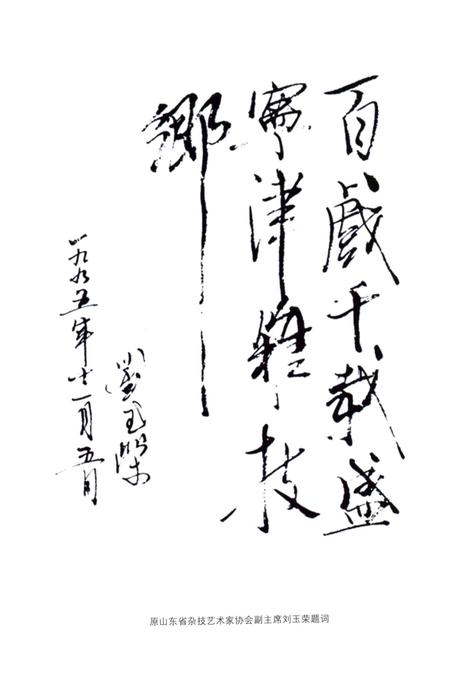 百戲千載盛
寧津雜技
鄉
劉玉榮
一九九五年十一月五日
原山东省杂技艺术家协会副主席刘玉荣题词